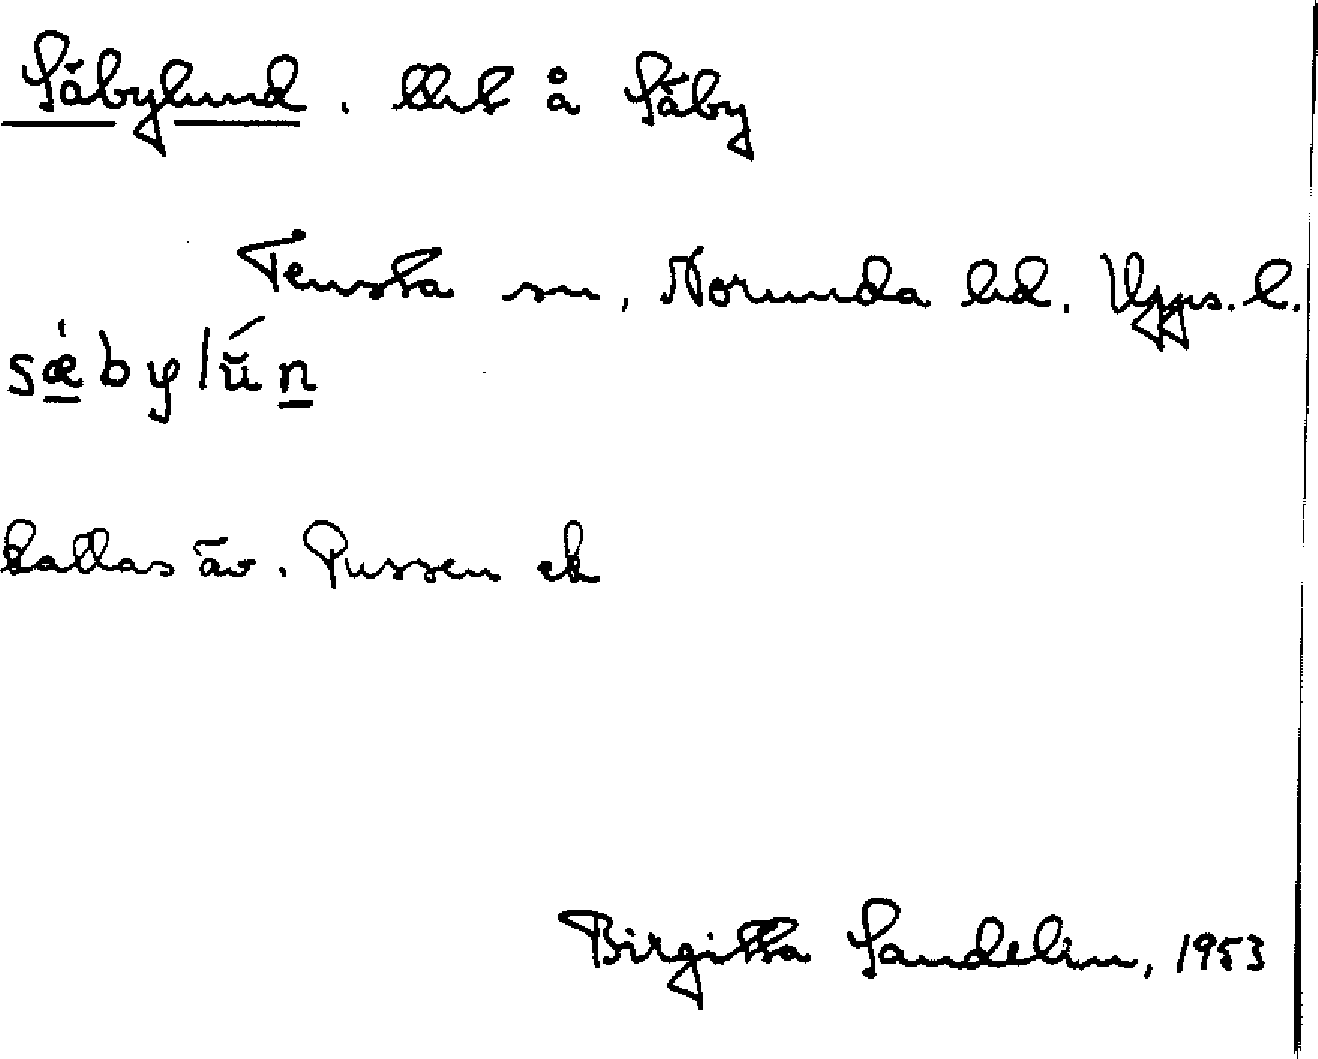 Säbylund. lht å Säby
Tensta sn, Norunda hd. Upps. l.
sǽbylǘn
kallas äv. Pussen ek
Birgitta Sandelin, 1953